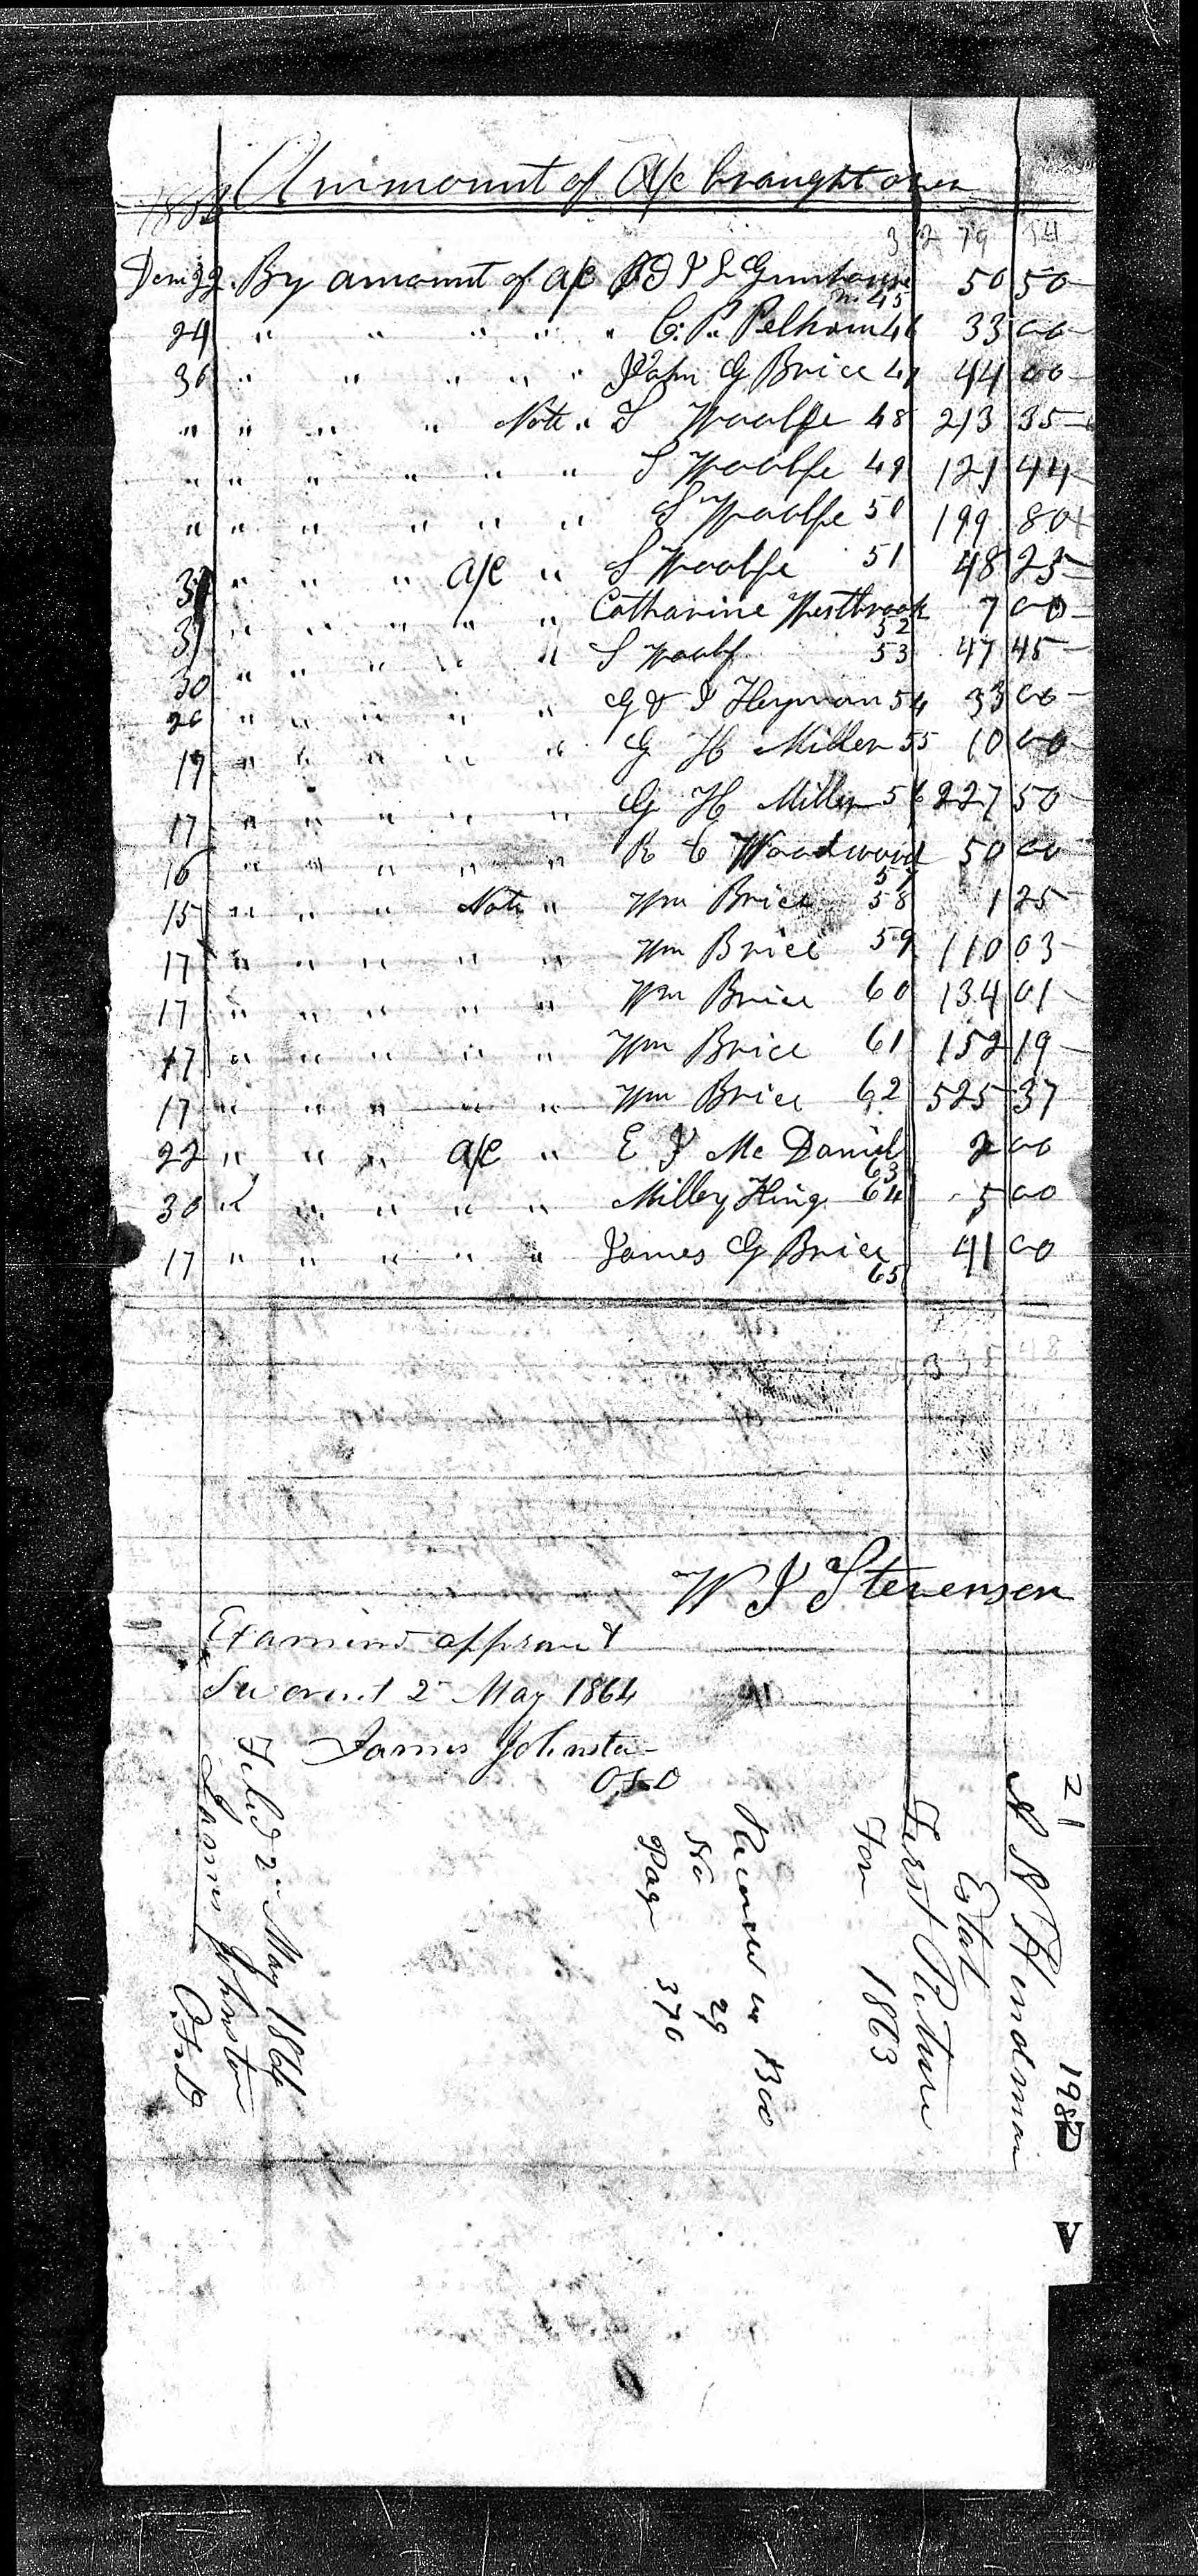 Ammount of A/c braught over
32 79 54
Dem 22 By amount of a/c 50 50
45
24 " " " " " C. P. Pelham 46 33 00
30 " " " " " John G Brice 47 44 00
" " " " Note " S Woolfe 48 213 35
" " " " " " S Woolfe 49 121 44
" " " " " " S Woolfe 50 199 80
" " " a/c " S Woolfe 51 48 25
31 " " " " " Catharine Westbrook 7 00
52
" " " " " S Woolf 53 47 45
30 " " " " " G & I Heyman 54 33 00
" " " " " G H Miller 55 10 00
17 " " " " " G H Miller 56 227 50
16 " " " " " R C Woodward 50 00
57
15 " " " Note " Wm Brice 58 1 25
17 " " " " " Wm Brice 59 110 03
17 " " " " " Wm Brice 60 134 01
17 " " " " " Wm Brice 61 152 19
17 " " " " " Wm Brice 62 525 37
22 " " " a/c " E J McDaniel 2 00
63
30 " " " " " Milley King 64 5 00
17 " " " " " James G Brice 41 00
65
W J Stevenson
Examined approved &
Sworn to 2 May 1864
James Johnston
O.F.D
Filed 2 May 1864
James Johnston
O.F.D
Recorded in Boo
No 29
Page 370
For 1863
First Return
Estate
Hindman
21
198
D
V